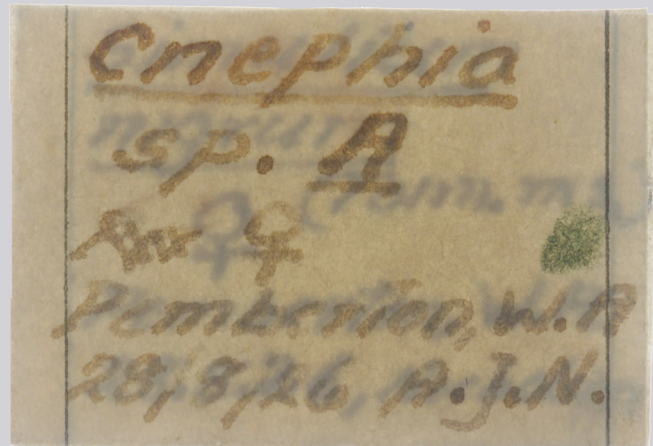 Cnephia
sp. A
♀
Pemberton, W.A
28/8/26, A.J.N.